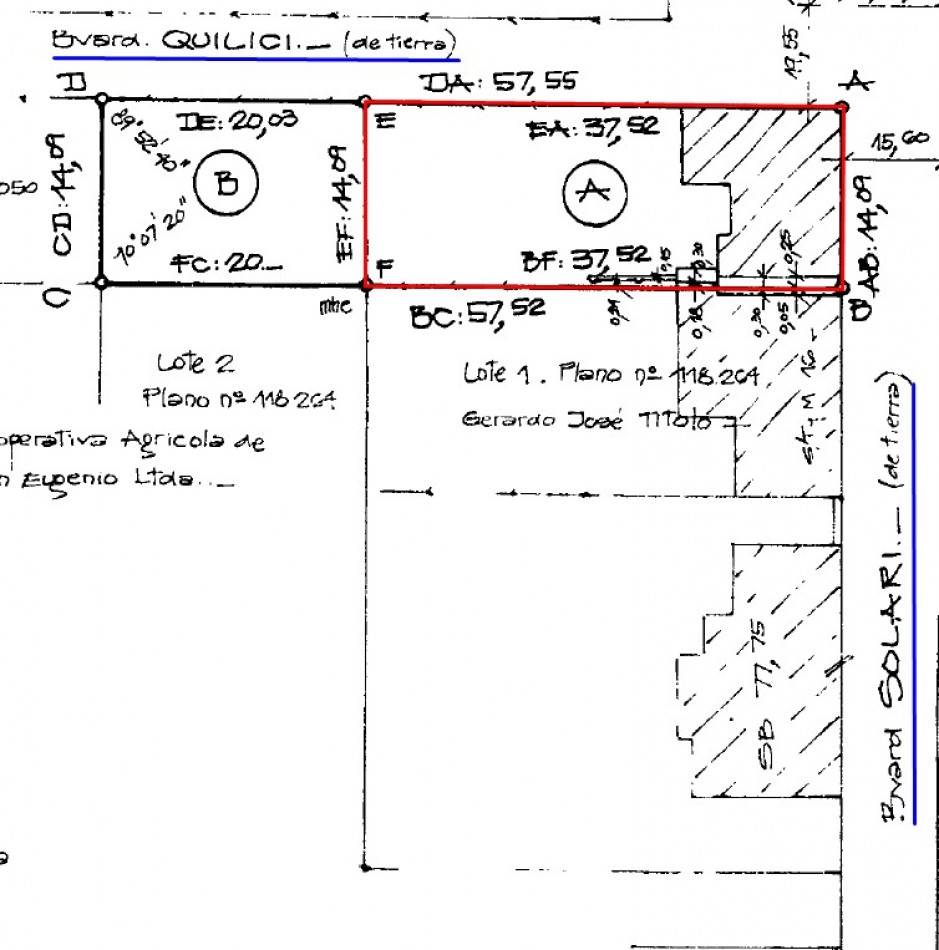 Bvard. QUILICI.- (de tierra)
19,55
D
DA: 57,55
A
DE: 20,03
E
EA: 37,52
15,60
89° 52' 40"
050
CD: 14,09
B
EF: 14,09
A
AB: 14,09
90° 07' 20"
FC: 20
F
BF: 37,52
0,15
0,30
0,25
C
mhe
BC: 57,52
B
0,18
0,30
0,05
Lote 2
Plano nº 118.264
Lote 1. Plano nº 118.264
Gerardo José
operativa Agricola de
n Eugenio Ltda.
(de tierra)
Bvard SOLARI.-
SB 77,75